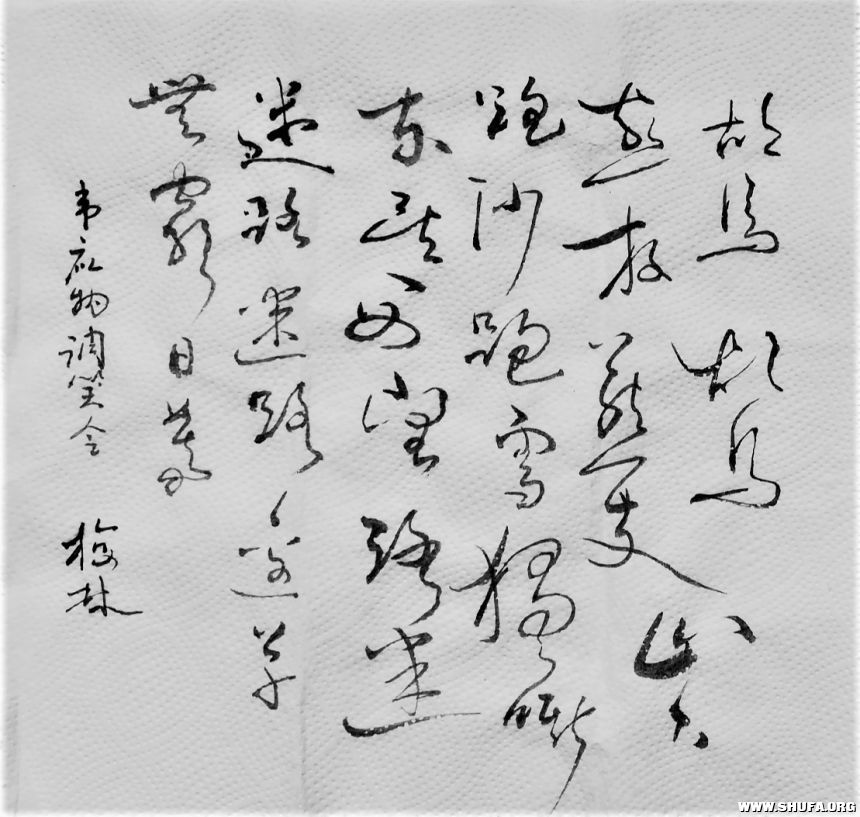 胡馬胡馬
遠放燕支山下
跑沙跑雪獨嘶
東望西望路迷
迷路迷路邊草
無窮日暮
韦应物調笑令
梅林
WWW.SHUFA.ORG